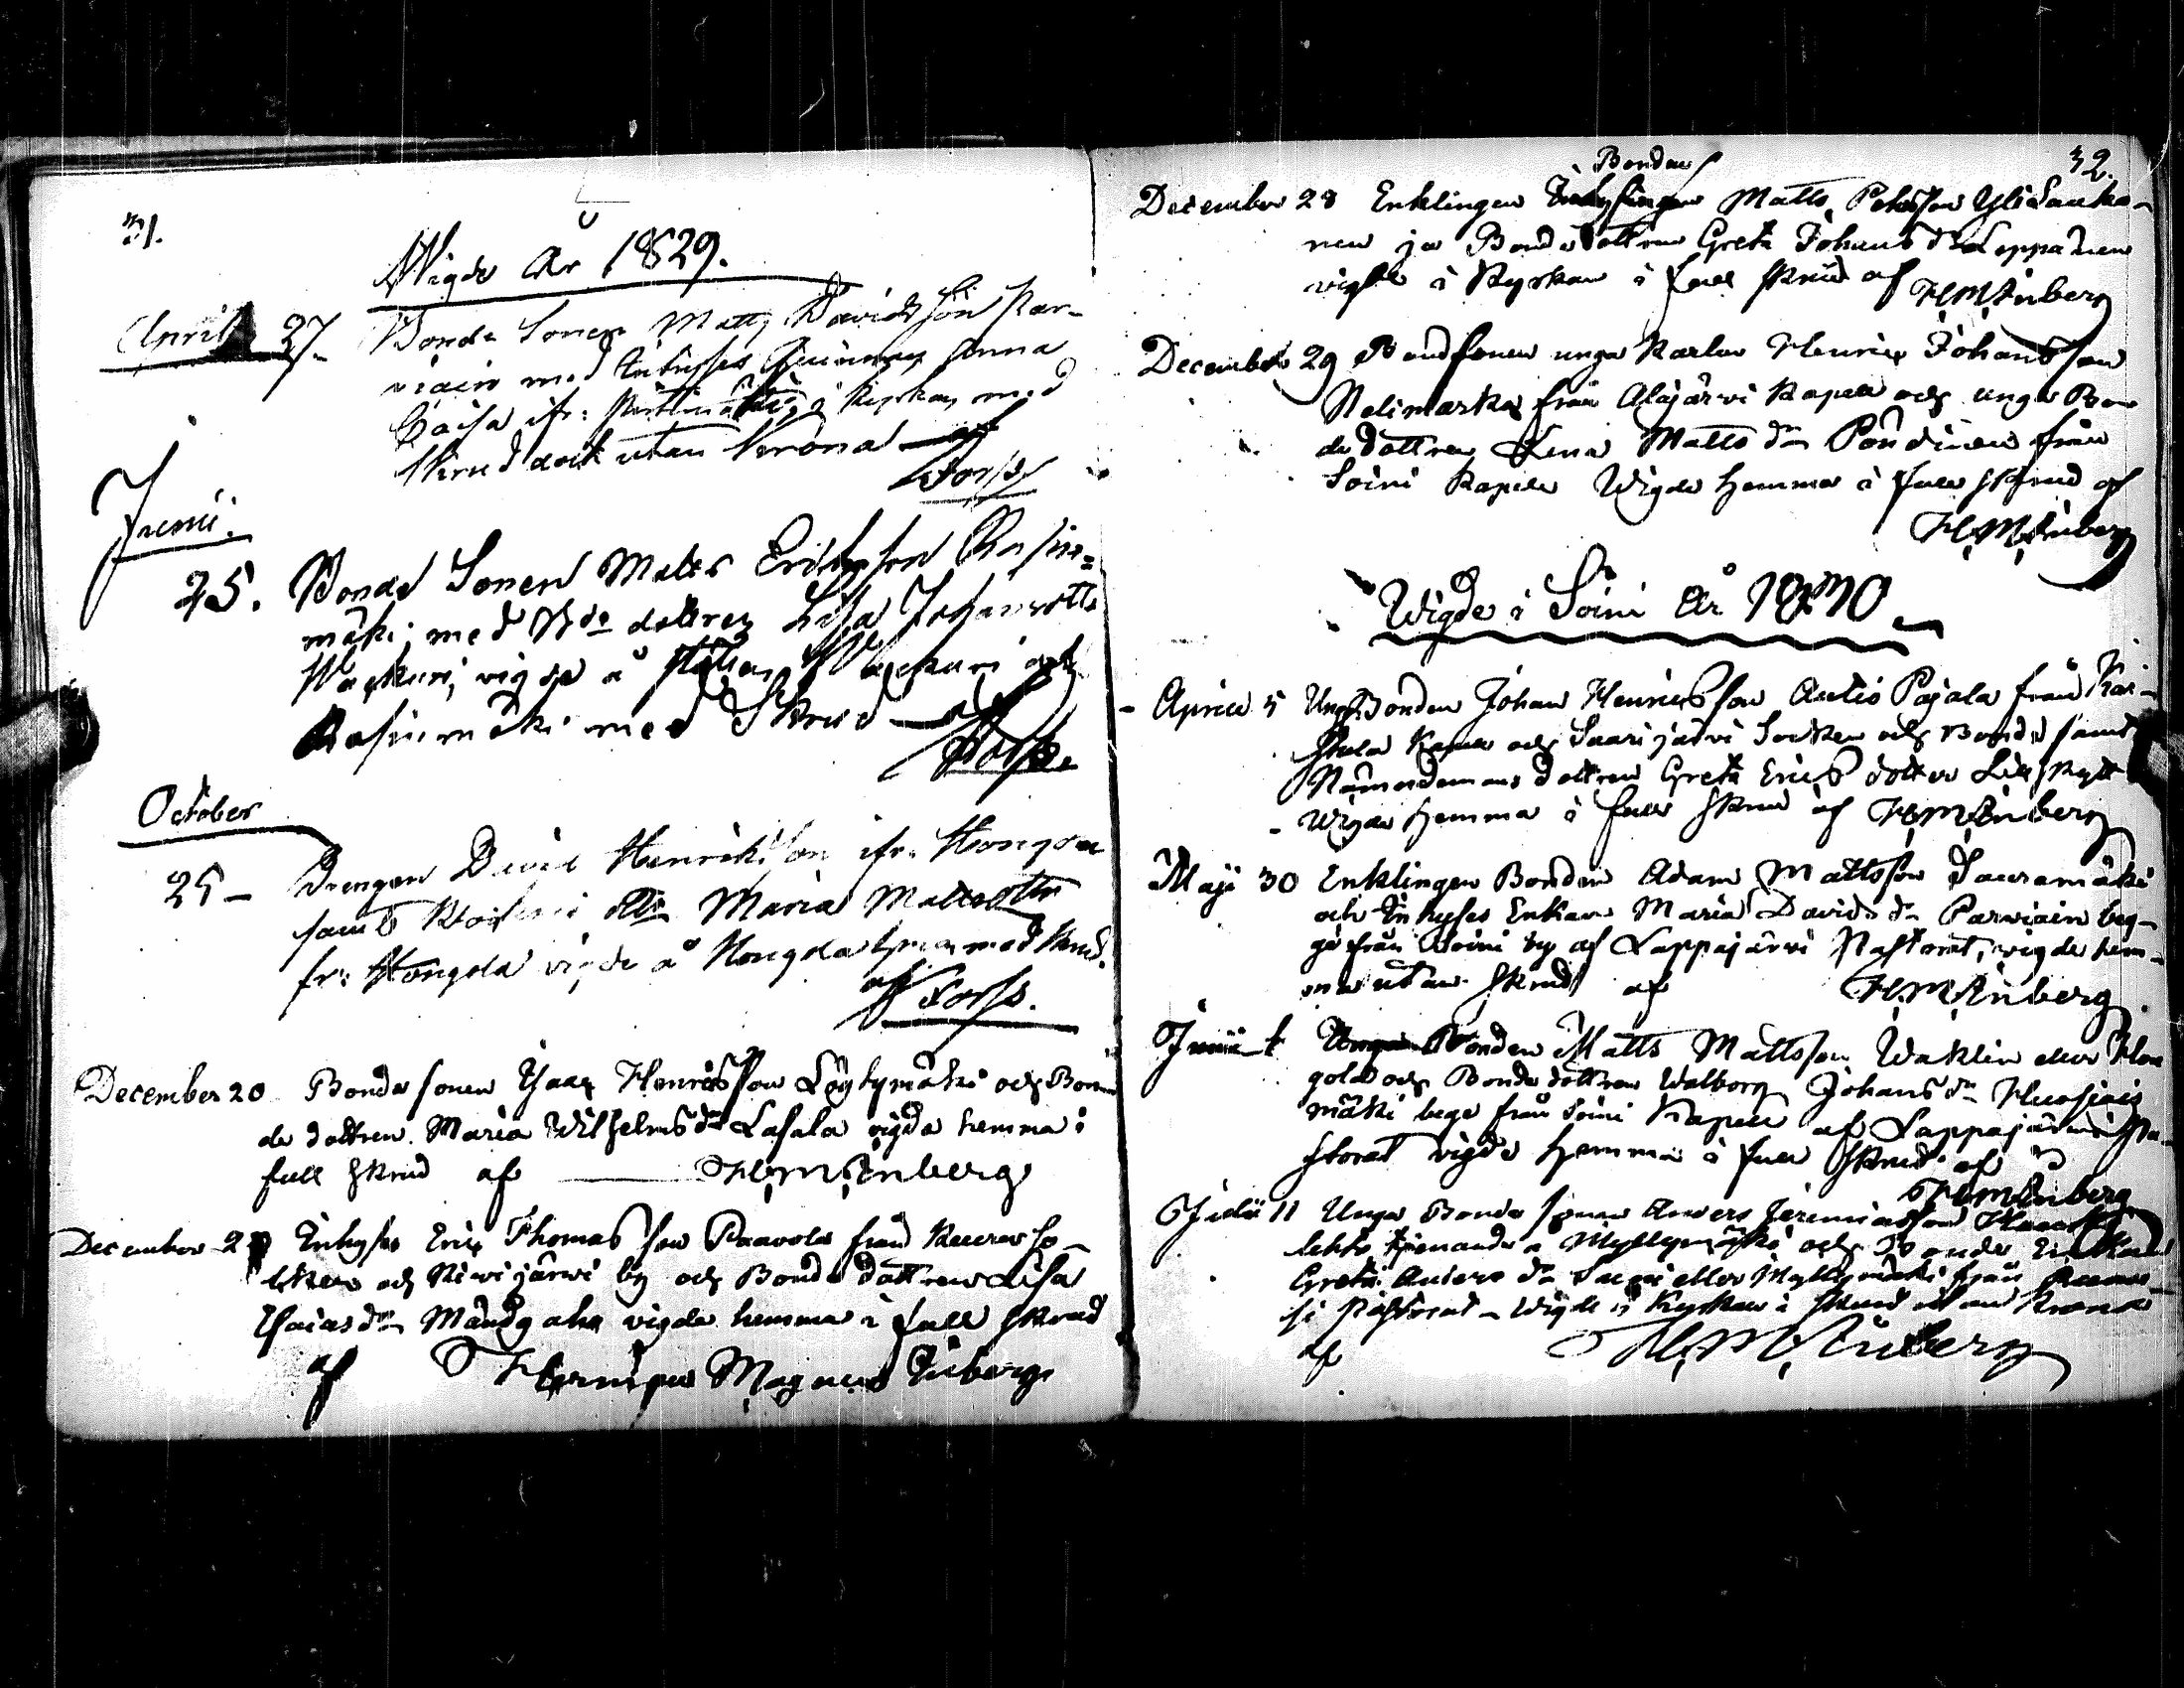 31.
Wigde År 1829.
April 27. Bonde Sonen Matts Davidsson Kar-
viain med Inhyses Qvinnan Anna
Caisa ifr: i Kyrkan med
Skrud dock utan Krona af
Forss
Junii.
25. Bonde Sonen Matts Ericksson Rasin-
mäki; med Bde dottren Lisa Johansdottr
Waskuri, vigde å Waskuri och
Rasinmäki med Skrud af
Forss.
October
25 - Drengen David Henriksson ifr: Hongola
samt Maria Mattsdotter
fr: Hongola vigde å Hongola hemman med skrud.
af Forss.
December 20 Bonde sonen Isaac Henricsson Löytymäki och Bon-
de dottren Maria Wilhelms dr Lasala vigde hemma i
full skrud af H. M. Enberg
December 2 Inhyses Eric Thomasson Paavola från Keuru So-
cken och Kiwijärwi by och Bonde dottren Lisa
Esaias dr vigde hemma i full skrud
af Herman Magnus Enberg
32.
Bonden
December 28 Enklingen Matts Petersson Yli Sanka-
nen ja Bonde dottren Greta Johans dr Leppänen
vigde i Kyrkan i full skrud af H. M. Enberg
December 29 Bondsonen unga Karlen Henric Johansson
Nelimarka från Alajärwi Kapell och unga Bon
de dottren Lena Matts dr Pöndinen från
Soini Kapell Wigde hemma i full skrud af
H. M. Enberg
Wigde i Soini År 1830
April 5 Unga Bonden Johan Henricsson Antio Pajala från Kar-
stula Kapell och Saarijärvi Socken och Bonde samt
Nämndemans dottren Greta Erics dotter Lill
Wigde hemma i full skrud af H. M. Enberg
Maji 30 Enklingen Bonden Adam Mattsson Sauramäki
och Inhyses Enkan Maria Davids dr Parwiain beg-
ge från Soini by af Lappajärwi Pastorat, wigde hem-
ma utan skrud af H. M. Enberg
Junii Bonden Matts Mattsson Waklin eller Hon
gola och Bonde dottren Walborg Johans dr
mäki bege från Soini Kapell af Lappajärwi Pa-
storat vigde hemma i full skrud af
H. M. Enberg
Julii 11 Unga Bonde sonen Anders Jeremiasson
lehto tjenande å Myllymäki och Bonde Enkan
Greta Anders dr eller Myllymäki från
si Pastorat - Wigde i Kyrkan i skrud utan Krona
af H. M. Enberg